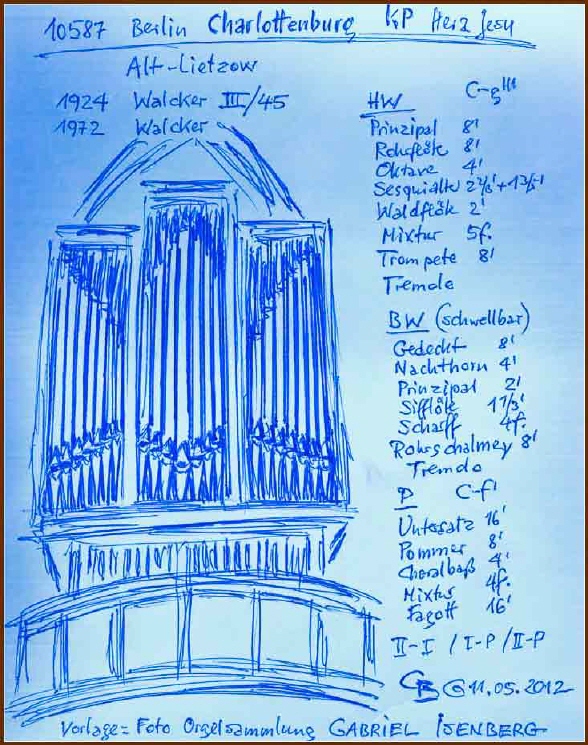 10587 Berlin Charlottenburg KP Herz Jesu
Alt-Lietzow
1924 Walcker III/45
1972 Walcker
HW C-g'''
Prinzipal 8'
Rohrflöte 8'
Oktave 4'
Sesquialter 2 2/3' + 1 3/5'
Waldflöte 2'
Mixtur 5f.
Trompete 8'
Tremolo
BW (schwellbar)
Gedeckt 8'
Nachthorn 4'
Prinzipal 2'
Sifflöte 1 1/3'
Scharff 4f.
Rohrschalmey 8'
Tremolo
P C-f'
Untersatz 16'
Pommer 8'
Choralbaß 4'
Mixtur 4f.
Fagott 16'
II-I / I-P / II-P
© 11.05.2012
Vorlage: Foto Orgelsammlung GABRIEL ISENBERG